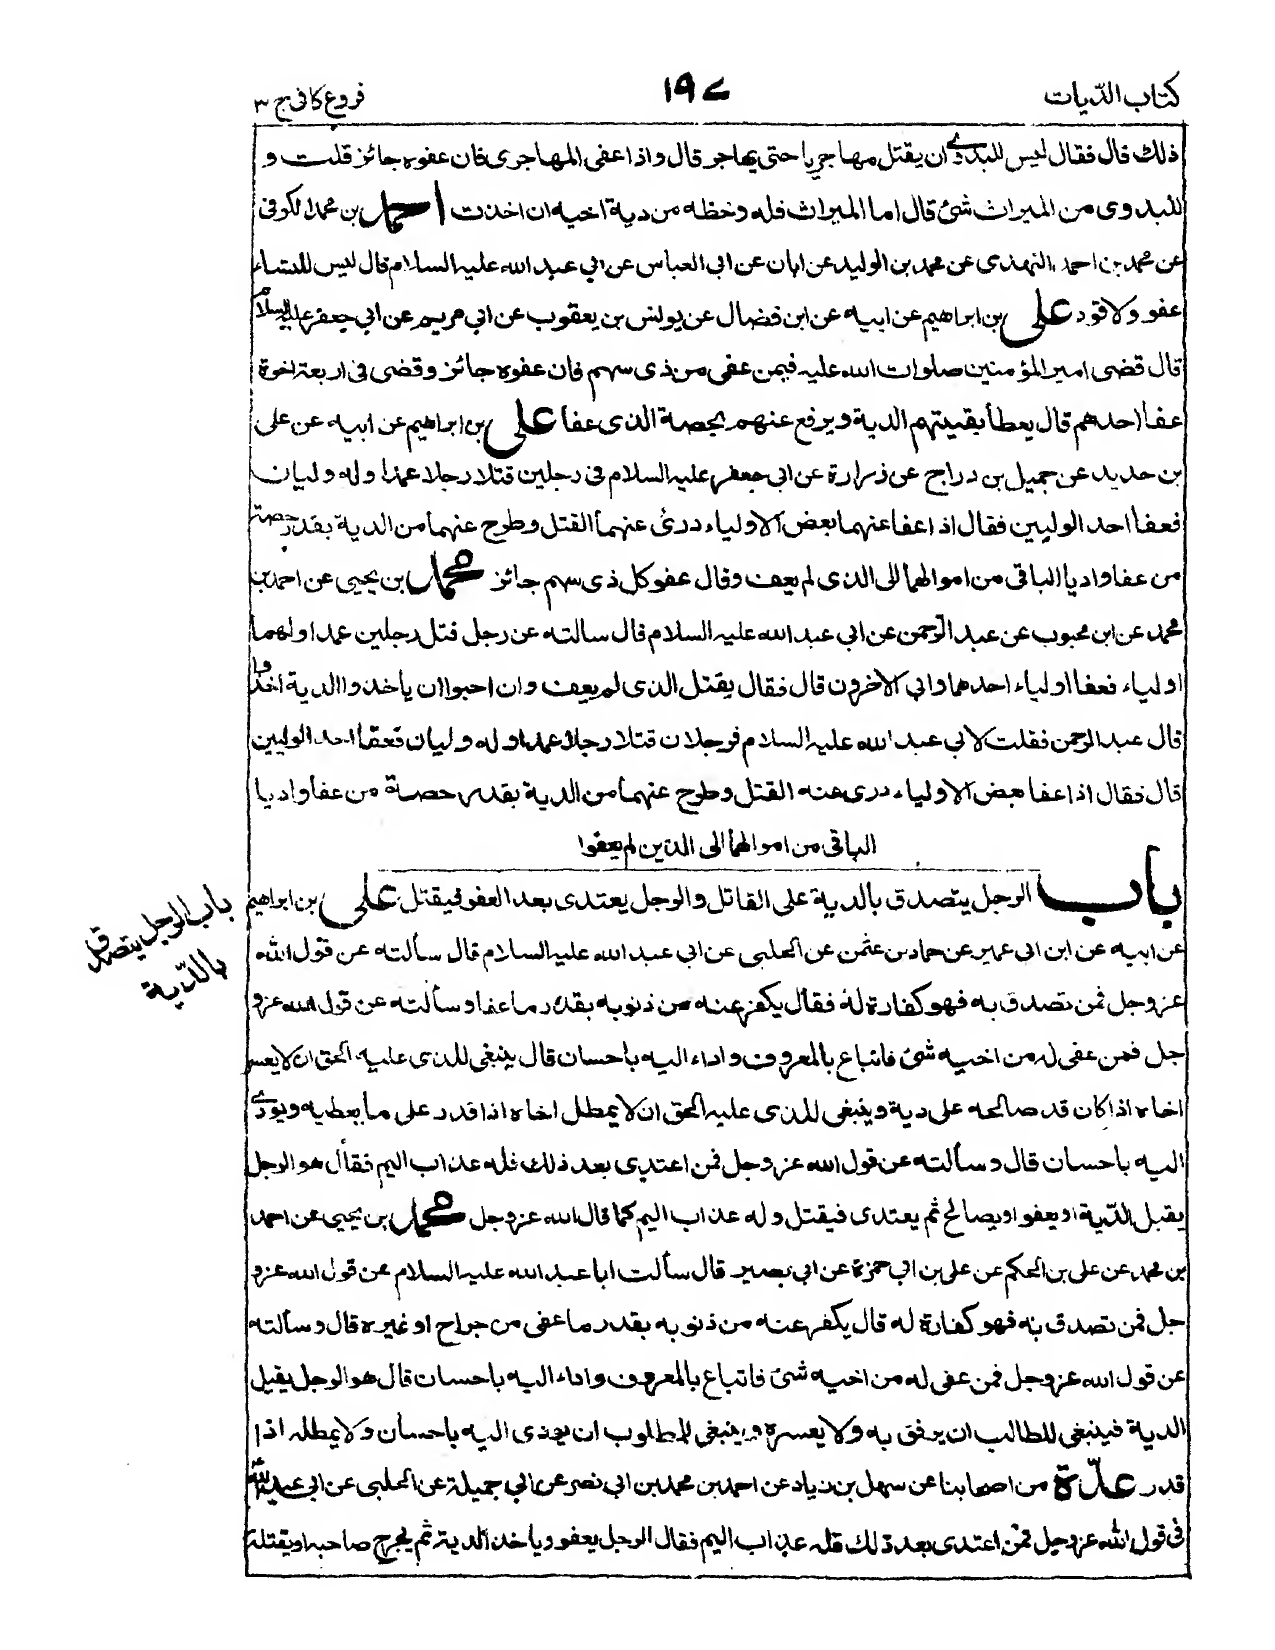 كتاب الدّيات
١٩٧
فروع كافى ج ٣
ذلك قال فقال ليس للبدوى ان يقتل مهاجريا حتى يهاجر قال واذا عفى المهاجرى فان عفوه جائز قلت و
للبدوى من الميراث شئ قال اما الميراث فله وحظه من دية اخيه ان اخذت احمد بن محمد الكوفى
عن محمد بن احمد النهدى عن محمد بن الوليد عن ابان عن ابى العباس عن ابي عبد الله عليه السلام قال ليس للنساء
عفو ولا قود على بن ابراهيم عن ابيه عن ابن فضال عن يونس بن يعقوب عن ابي مريم عن ابي جعفر عليه السلام
قال قضى امير المؤمنين صلوات الله عليه فيمن عفى من ذى سهم فان عفوه جائز وقضى فى اربعة اخوة
عفا احدهم قال يعطا بقيتهم الدية ويرفع عنهم بحصة الذى عفا على بن ابراهيم عن ابيه عن على
بن حديد عن جميل بن دراج عن زرارة عن ابي جعفر عليه السلام فى رجلين قتلا رجلا عمدا وله وليان
فعفا احد الوليين فقال اذا عفا عنهما بعض الاولياء درئ عنهما القتل وطرح عنهما من الدية بقدر حصة
من عفا واديا الباقى من اموالهما الى الذى لم يعف وقال عفو كل ذى سهم جائز محمد بن يحيى عن احمد بن
محمد عن ابن محبوب عن عبد الرحمن عن ابي عبد الله عليه السلام قال سالته عن رجل قتل رجلين عمدا ولهما
اولياء فعفا اولياء احدهما وابي الاخرون قال فقال يقتل الذى لم يعف وان احبوا ان ياخذوا الدية اخذوا
قال عبد الرحمن فقلت لابي عبد الله عليه السلام فرجلان قتلا رجلا عمدا وله وليان فعفا احد الوليين
قال فقال اذا عفا بعض الاولياء درى عنه القتل وطرح عنهما من الدية بقدر حصة من عفا واديا
الباقى من اموالهما الى الذين لم يعفوا
باب الرجل يتصدق بالدية على القاتل والرجل يعتدى بعد العفو فيقتل على بن ابراهيم
باب الرجل يتصدق
بالدّية
عن ابيه عن ابن ابى عمير عن حماد بن عثمن عن الحلبى عن ابي عبد الله عليه السلام قال سألته عن قول الله
عزوجل فمن تصدق به فهو كفارة له فقال يكفر عنه من ذنوبه بقدر ما عفا وسألته عن قول الله عزو
جل فمن عفى له من اخيه شئ فاتباع بالمعروف واداء اليه باحسان قال ينبغى للذى عليه الحق ان لا يعسر
اخاه اذا كان قد صالحه على دية وينبغى للذى عليه الحق ان لا يمطل اخاه اذا قدر على ما يعطيه ويودى
اليه باحسان قال وسألته عن قول الله عزوجل فمن اعتدى بعد ذلك فله عذاب اليم فقال هو الرجل
يقبل الدّية او يعفو او يصالح ثم يعتدى فيقتل وله عذاب اليم كما قال الله عزوجل محمد بن يحيى عن احمد
بن محمد عن على بن الحكم عن على بن ابي حمزة عن ابي بصير قال سألت ابا عبد الله عليه السلام عن قول الله عزو
جل فمن تصدق به فهو كفارة له قال يكفر عنه من ذنوبه بقدر ما عفى من جراح او غيره قال وسألته
عن قول الله عزوجل فمن عفى له من اخيه شئ فاتباع بالمعروف واداء اليه باحسان قال هو الرجل يقبل
الدية فينبغى للطالب ان يرفق به ولا يعسره وينبغى للمطلوب ان يؤدى اليه باحسان ولا يمطله اذا
قدر عدّة من اصحابنا عن سهل بن زياد عن احمد بن محمد بن ابي نصر عن ابي جميلة عن الحلبى عن ابي عبد الله
فى قول الله عزوجل فمن اعتدى بعد ذلك فله عذاب اليم فقال الرجل يعفو وياخذ الدية ثم يجرح صاحبه او يقتله